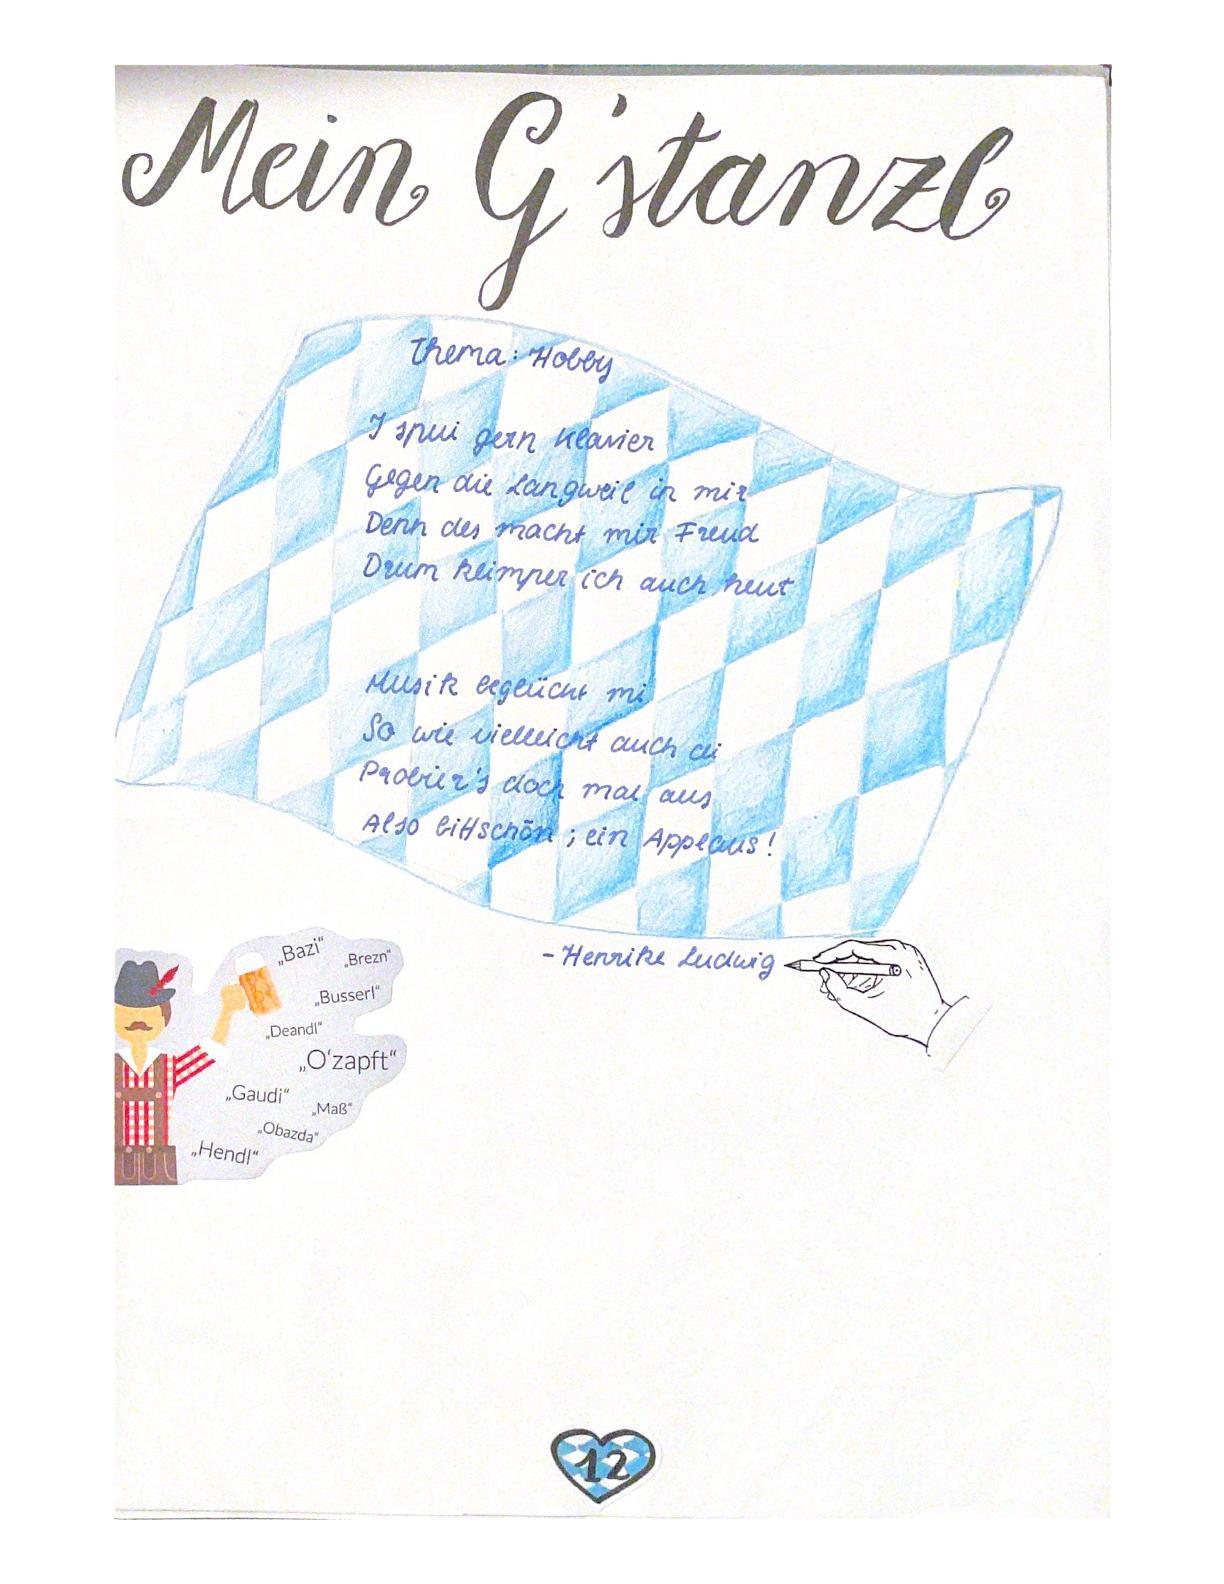 Mein G'stanzl
Thema: Hobby
I spui gern Klavier
Gegen die Langweil in mir
Denn des macht mir Freud
Drum klimper ich auch heut
Musik beglückt mi
So wie vielleicht auch di
Probier's doch mal aus
Also bittschön ; ein Applaus!
- Henrike Ludwig
„Bazi“
„Brezn“
„Busserl“
„Deandl“
„O'zapft“
„Gaudi“
„Maß“
„Obazda“
„Hendl“
12